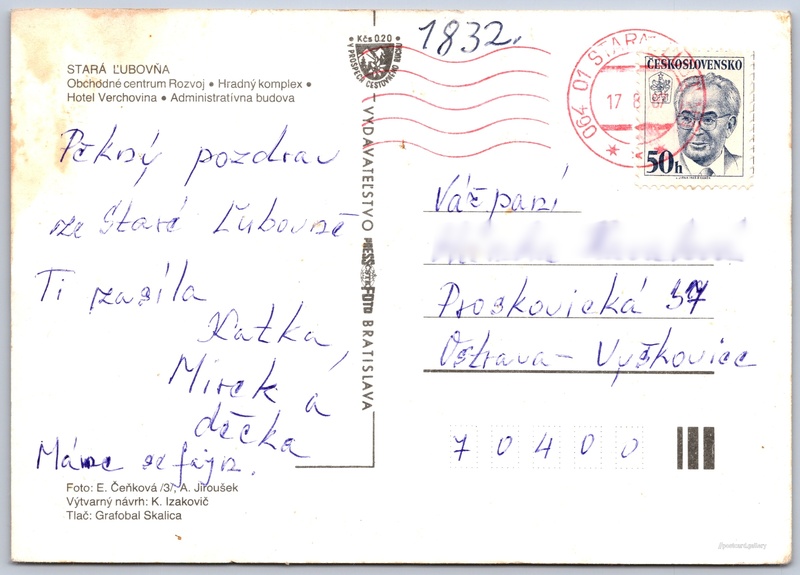 STARÁ ĽUBOVŇA
Obchodné centrum Rozvoj • Hradný komplex •
Hotel Verchovina • Administratívna budova
Pěkný pozdrav
ze Staré Ľubovně
Ti zasílá
Katka,
Mirek a
děcka
Máme se fajn.
Foto: E. Čeňková /3/, A. Jiroušek
Výtvarný návrh: K. Izakovič
Tlač: Grafobal Skalica
Kčs 0.20
V PROSPECH CESTOVNÉHO RUCHU
VYDAVATEĽSTVO PRESSFOTO BRATISLAVA
1832.
064 01 STARÁ
17 8 87
ČESKOSLOVENSKO
50h
Váž paní
Proskovická 37
Ostrava – Vyškovice
70400
//postcard.gallery